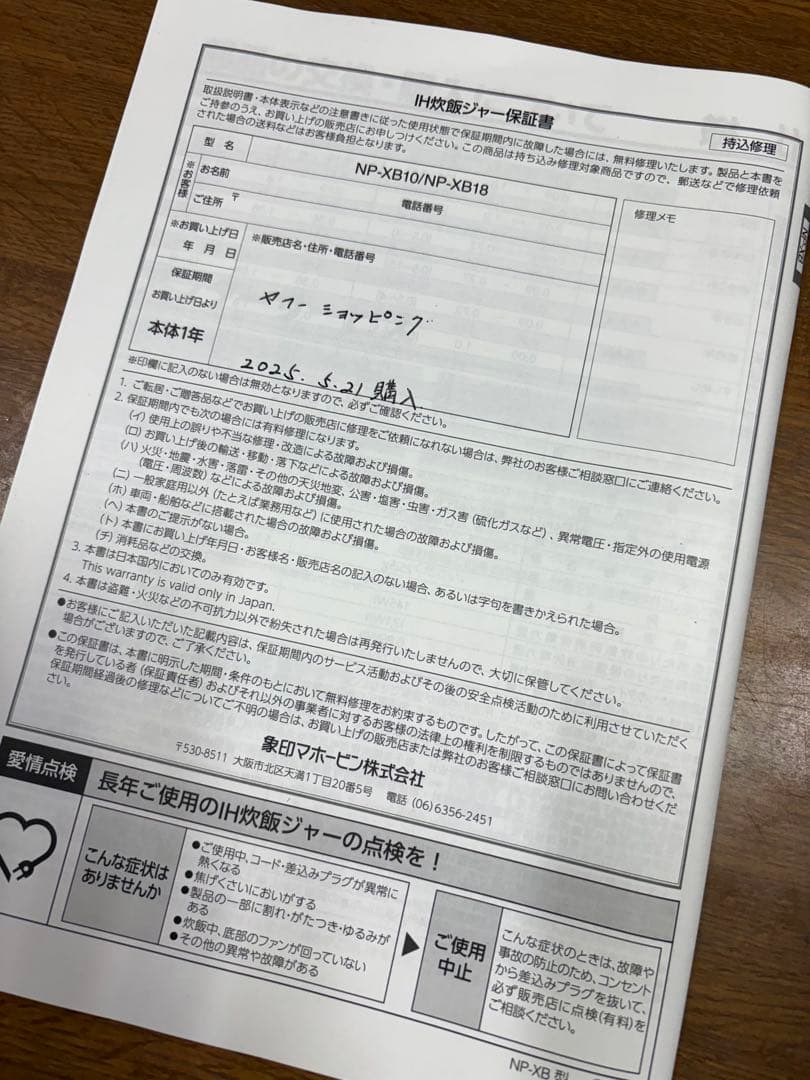 IH炊飯ジャー保証書
持込修理
取扱説明書・本体表示などの注意書きに従った使用状態で保証期間内に故障した場合には、無料修理いたします。製品と本書を
ご持参のうえ、お買い上げの販売店にお申しつけください。この商品は持ち込み修理対象商品ですので、郵送などで修理依頼
された場合の送料などはお客様負担となります。
型 名
NP-XB10/NP-XB18
※お客様
お名前
電話番号
ご住所 〒
※お買い上げ日
年 月 日
※販売店名・住所・電話番号
保証期間
お買い上げ日より
本体1年
ヤフーショッピング
2025.5.21購入
修理メモ
※印欄に記入のない場合は無効となりますので、必ずご確認ください。
1. ご転居・ご贈答品などでお買い上げの販売店に修理をご依頼になれない場合は、弊社のお客様ご相談窓口にご連絡ください。
2. 保証期間内でも次の場合には有料修理になります。
(イ) 使用上の誤りや不当な修理・改造による故障および損傷。
(ロ) お買い上げ後の輸送・移動・落下などによる故障および損傷。
(ハ) 火災・地震・水害・落雷・その他の天災地変、公害・塩害・虫害・ガス害(硫化ガスなど)、異常電圧・指定外の使用電源
(電圧・周波数)などによる故障および損傷。
(ニ) 一般家庭用以外(たとえば業務用など)に使用された場合の故障および損傷。
(ホ) 車両・船舶などに搭載された場合の故障および損傷。
(ヘ) 本書のご提示がない場合。
(ト) 本書にお買い上げ年月日・お客様名・販売店名の記入のない場合、あるいは字句を書きかえられた場合。
(チ) 消耗品などの交換。
3. 本書は日本国内においてのみ有効です。
This warranty is valid only in Japan.
4. 本書は盗難・火災などの不可抗力以外で紛失された場合は再発行いたしませんので、大切に保管してください。
●お客様にご記入いただいた記載内容は、保証期間内のサービス活動およびその後の安全点検活動のために利用させていただく
場合がございますので、ご了承ください。
●この保証書は、本書に明示した期間・条件のもとにおいて無料修理をお約束するものです。したがって、この保証書によって保証書
を発行している者(保証責任者)およびそれ以外の事業者に対するお客様の法律上の権利を制限するものではありませんので、
保証期間経過後の修理などについてご不明の場合は、お買い上げの販売店または弊社のお客様ご相談窓口にお問い合わせくだ
さい。
象印マホービン株式会社
〒530-8511 大阪市北区天満1丁目20番5号 電話 (06)6356-2451
愛情点検
長年ご使用のIH炊飯ジャーの点検を!
こんな症状は
ありませんか
●ご使用中、コード・差込みプラグが異常に
熱くなる
●焦げくさいにおいがする
●製品の一部に割れ・がたつき・ゆるみが
ある
●炊飯中、底部のファンが回っていない
●その他の異常や故障がある
ご使用
中止
こんな症状のときは、故障や
事故の防止のため、コンセント
から差込みプラグを抜いて、
必ず販売店に点検(有料)を
ご相談ください。
NP-XB 型